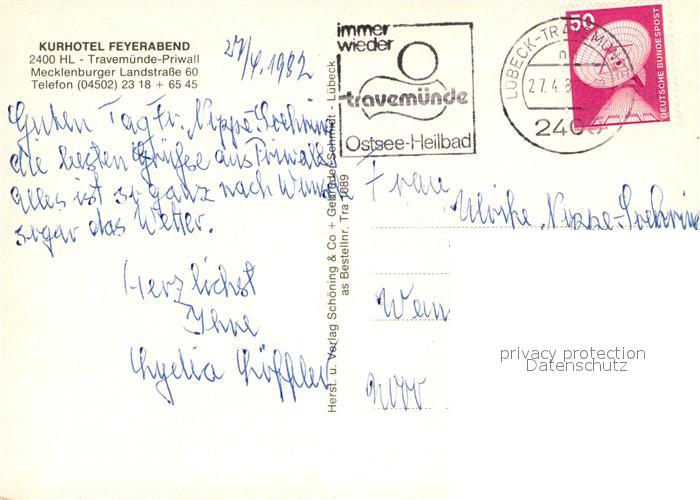 KURHOTEL FEYERABEND
2400 HL - Travemünde-Priwall
Mecklenburger Landstraße 60
Telefon (04502) 23 18 + 65 45
27/4.1982
Guten Tag Fr. Nippe-
die besten Grüße aus Priwall
alles ist so ganz nach Wunsch
sogar das Wetter.
Herzlichst
Ihre
Lydia Löffler
Herst. u. Verlag Schöning & Co + Gebrüder Schmidt - Lübeck
as Bestellnr. Tra 1089
immer
wieder
travemünde
Ostsee-Heilbad
LÜBECK-TRAVEMÜNDE
27.4.8
2400
50
DEUTSCHE BUNDESPOST
Frau
Ulrike Nippe-
privacy protection
Datenschutz